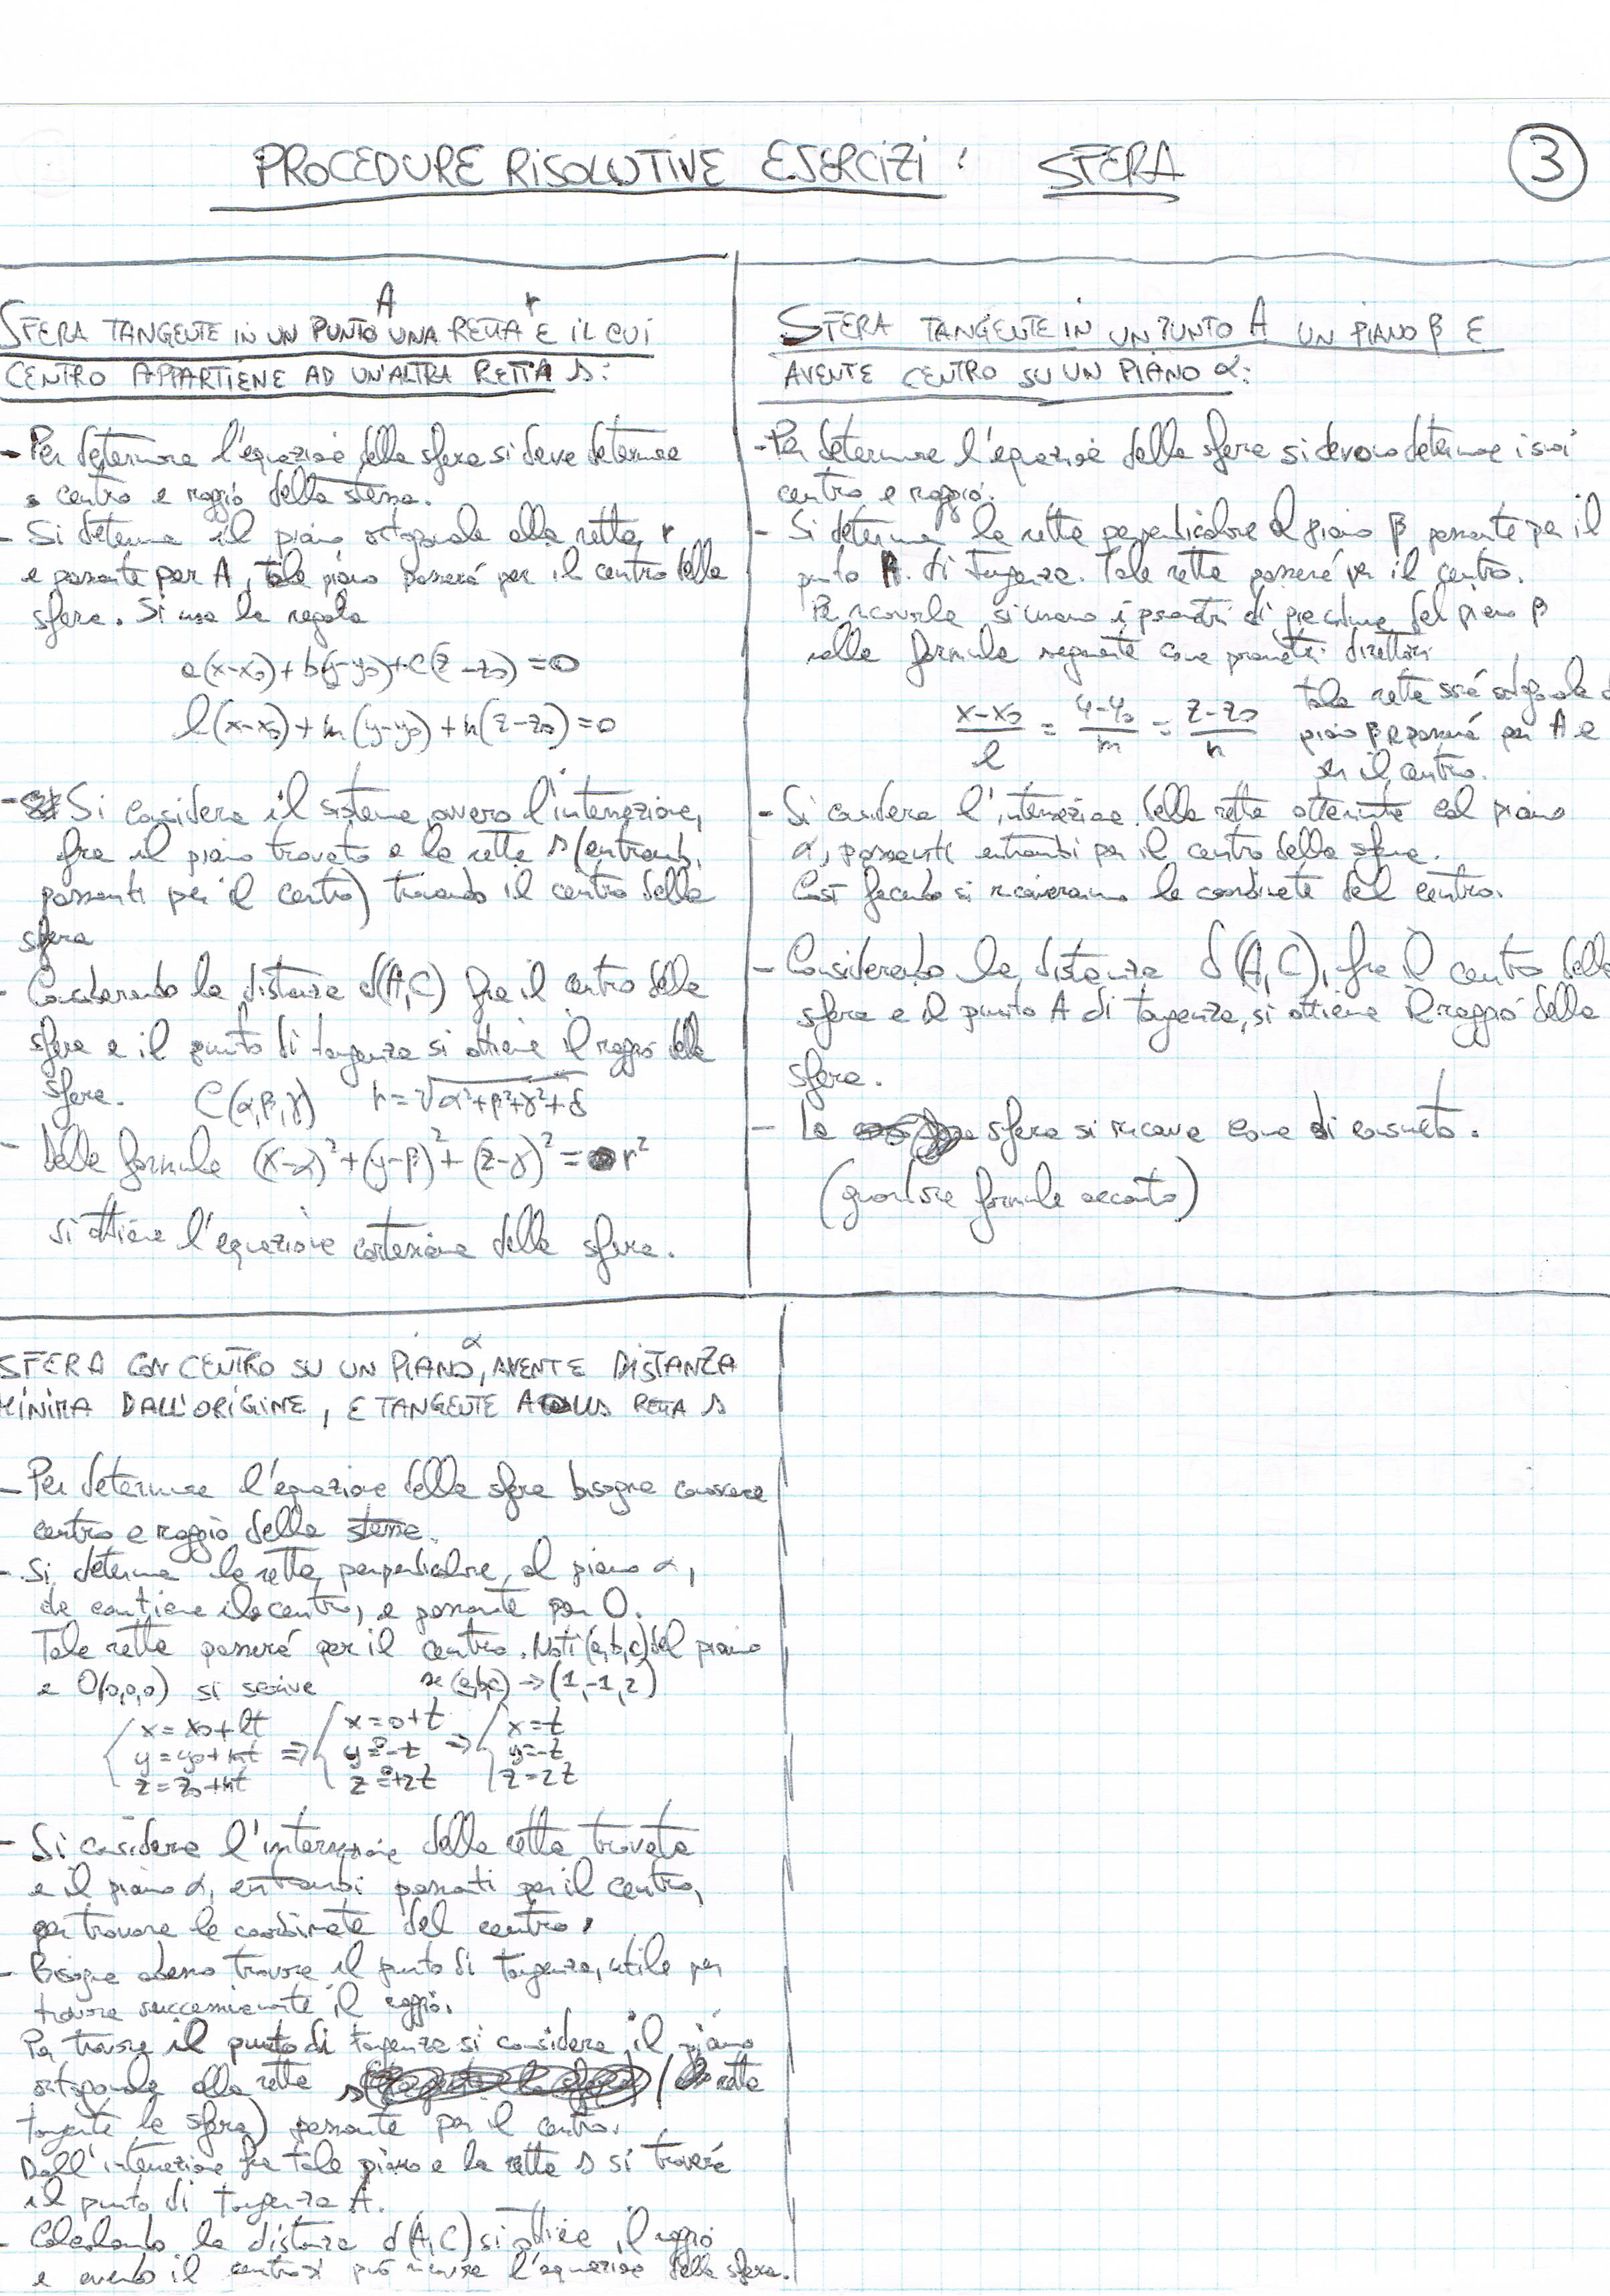 PROCEDURE RISOLUTIVE ESERCIZI : SFERA
3
A r
SFERA TANGENTE IN UN PUNTO UNA RETTA E IL CUI
CENTRO APPARTIENE AD UN'ALTRA RETTA s:
- Per determinare l'equazione della sfera si deve determinare
centro e raggio della stessa.
- Si determina il piano ortogonale alla retta r
e passante per A, tale piano passerà per il centro della
sfera. Si usa la regola
a(x-x₀)+b(y-y₀)+c(z-z₀)=0
l(x-x₀)+m(y-y₀)+n(z-z₀)=0
- Si considera il sistema, ovvero l'intersezione,
fra il piano trovato e la retta s (entrambi
passanti per il centro) trovando il centro della
sfera
- Considerando la distanza d(A,C) fra il centro della
sfera e il punto di tangenza si ottiene il raggio della
sfera. C(α,β,γ) r=√α²+β²+γ²+δ
- Dalla formula (x-α)²+(y-β)²+(z-γ)²=r²
si ottiene l'equazione cartesiana della sfera.
SFERA TANGENTE IN UN PUNTO A UN PIANO β E
AVENTE CENTRO SU UN PIANO α:
- Per determinare l'equazione della sfera si devono determinare i suoi
centro e raggio.
- Si determina la retta perpendicolare al piano β passante per il
punto A di tangenza. Tale retta passerà per il centro.
Per ricavarla si usano i parametri di giacitura del piano β
nella formula seguente come parametri direttori
x-x₀/l = y-y₀/m = z-z₀/n
tale retta sarà ortogonale
piano β e passerà per A e
per il centro.
- Si considera l'intersezione della retta ottenuta col piano
α, passanti entrambi per il centro della sfera.
Così facendo si ricaveranno le coordinate del centro.
- Considerando la distanza d(A,C), fra il centro della
sfera e il punto A di tangenza, si ottiene il raggio della
sfera.
- La sfera si ricava come di consueto.
(guardare formula accanto)
α
SFERA CON CENTRO SU UN PIANO, AVENTE DISTANZA
MINIMA DALL'ORIGINE, E TANGENTE A RETTA s
- Per determinare l'equazione della sfera bisogna conoscere
centro e raggio della stessa.
- Si determina la retta perpendicolare al piano α,
che contiene il centro, e passante per O.
Tale retta passerà per il centro. Noti (a,b,c) del piano
e O(0,0,0) si scrive se (a,b,c) → (1,-1,2)
{ x=x₀+lt { x=0+t { x=t
y=y₀+mt ⇒ y=0-t ⇒ y=-t
z=z₀+nt z=0+2t z=2t
- Si considera l'intersezione della retta trovata
e il piano α, entrambi passanti per il centro,
per trovare le coordinate del centro.
- Bisogna adesso trovare il punto di tangenza, utile per
trovare successivamente il raggio.
Per trovare il punto di tangenza si considera il piano
ortogonale alla retta s (retta
tangente la sfera) passante per il centro.
Dall'intersezione fra tale piano e la retta s si troverà
il punto di tangenza A.
- Calcolando la distanza d(A,C) si ottiene il raggio
e avendo il centro si può ricavare l'equazione della sfera.